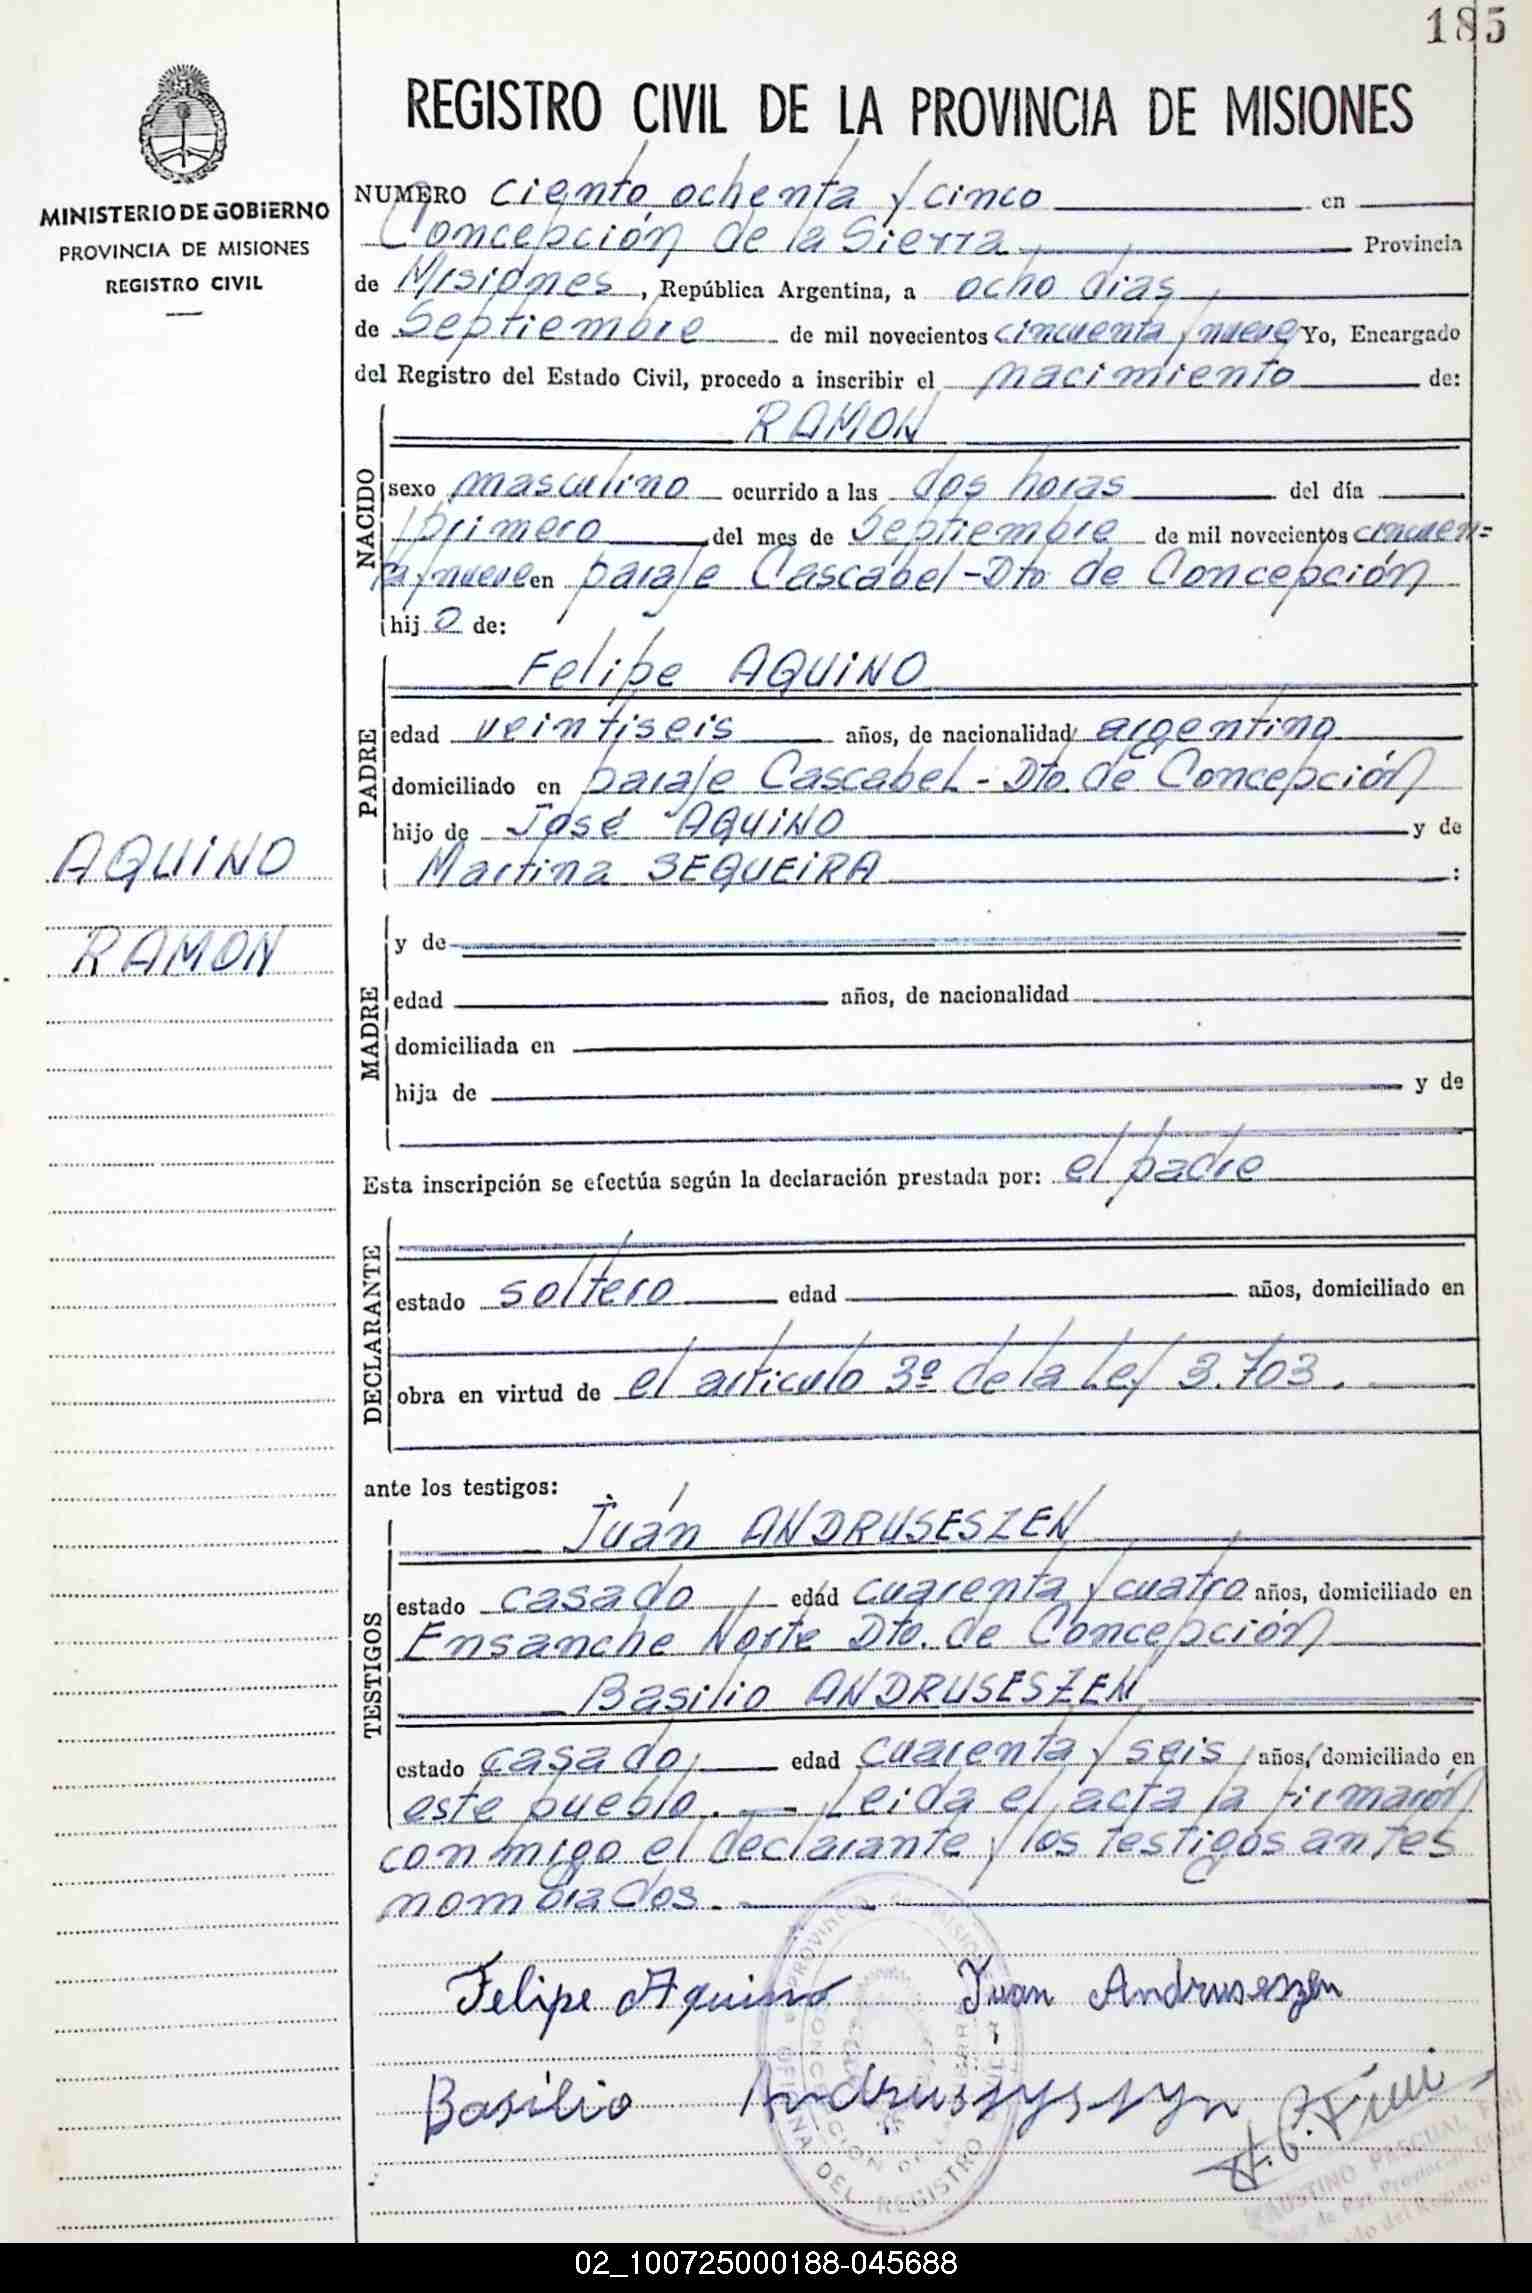 185
REGISTRO CIVIL DE LA PROVINCIA DE MISIONES
MINISTERIO DE GOBIERNO
PROVINCIA DE MISIONES
REGISTRO CIVIL
NUMERO ciento ochenta y cinco en
Concepción de la Sierra Provincia
de Misiones, República Argentina, a ocho dias
de Septiembre de mil novecientos cincuenta y nueve Yo, Encargado
del Registro del Estado Civil, procedo a inscribir el nacimiento de:
NACIDO
RAMON
sexo masculino ocurrido a las dos horas del día
primero del mes de Septiembre de mil novecientos cincuen=
ta y nueve en paraje Cascabel - Dto de Concepción
hij o de:
PADRE
Felipe AQUINO
edad veintiseis años, de nacionalidad argentino
domiciliado en paraje Cascabel - Dto. de Concepción
hijo de José AQUINO y de
Martina SEQUEIRA :
AQUINO
RAMON
MADRE
y de
edad años, de nacionalidad
domiciliada en
hija de y de
Esta inscripción se efectúa según la declaración prestada por: el padre
DECLARANTE
estado soltero edad años, domiciliado en
obra en virtud de el articulo 3º de la Ley 3.703.
ante los testigos:
TESTIGOS
Juán ANDRUSESZEN
estado casado edad cuarenta y cuatro años, domiciliado en
Ensanche Norte Dto. de Concepción
Basilio ANDRUSESZEN
estado casado edad cuarenta y seis años, domiciliado en
este pueblo. Leida el acta la firmarón
conmigo el declarante y los testigos antes
nombrados.
Felipe Aquino Juan Andruseszen
Basilio
OFICINA DEL REGISTRO
FAUSTINO PASCUAL
02_100725000188-045688